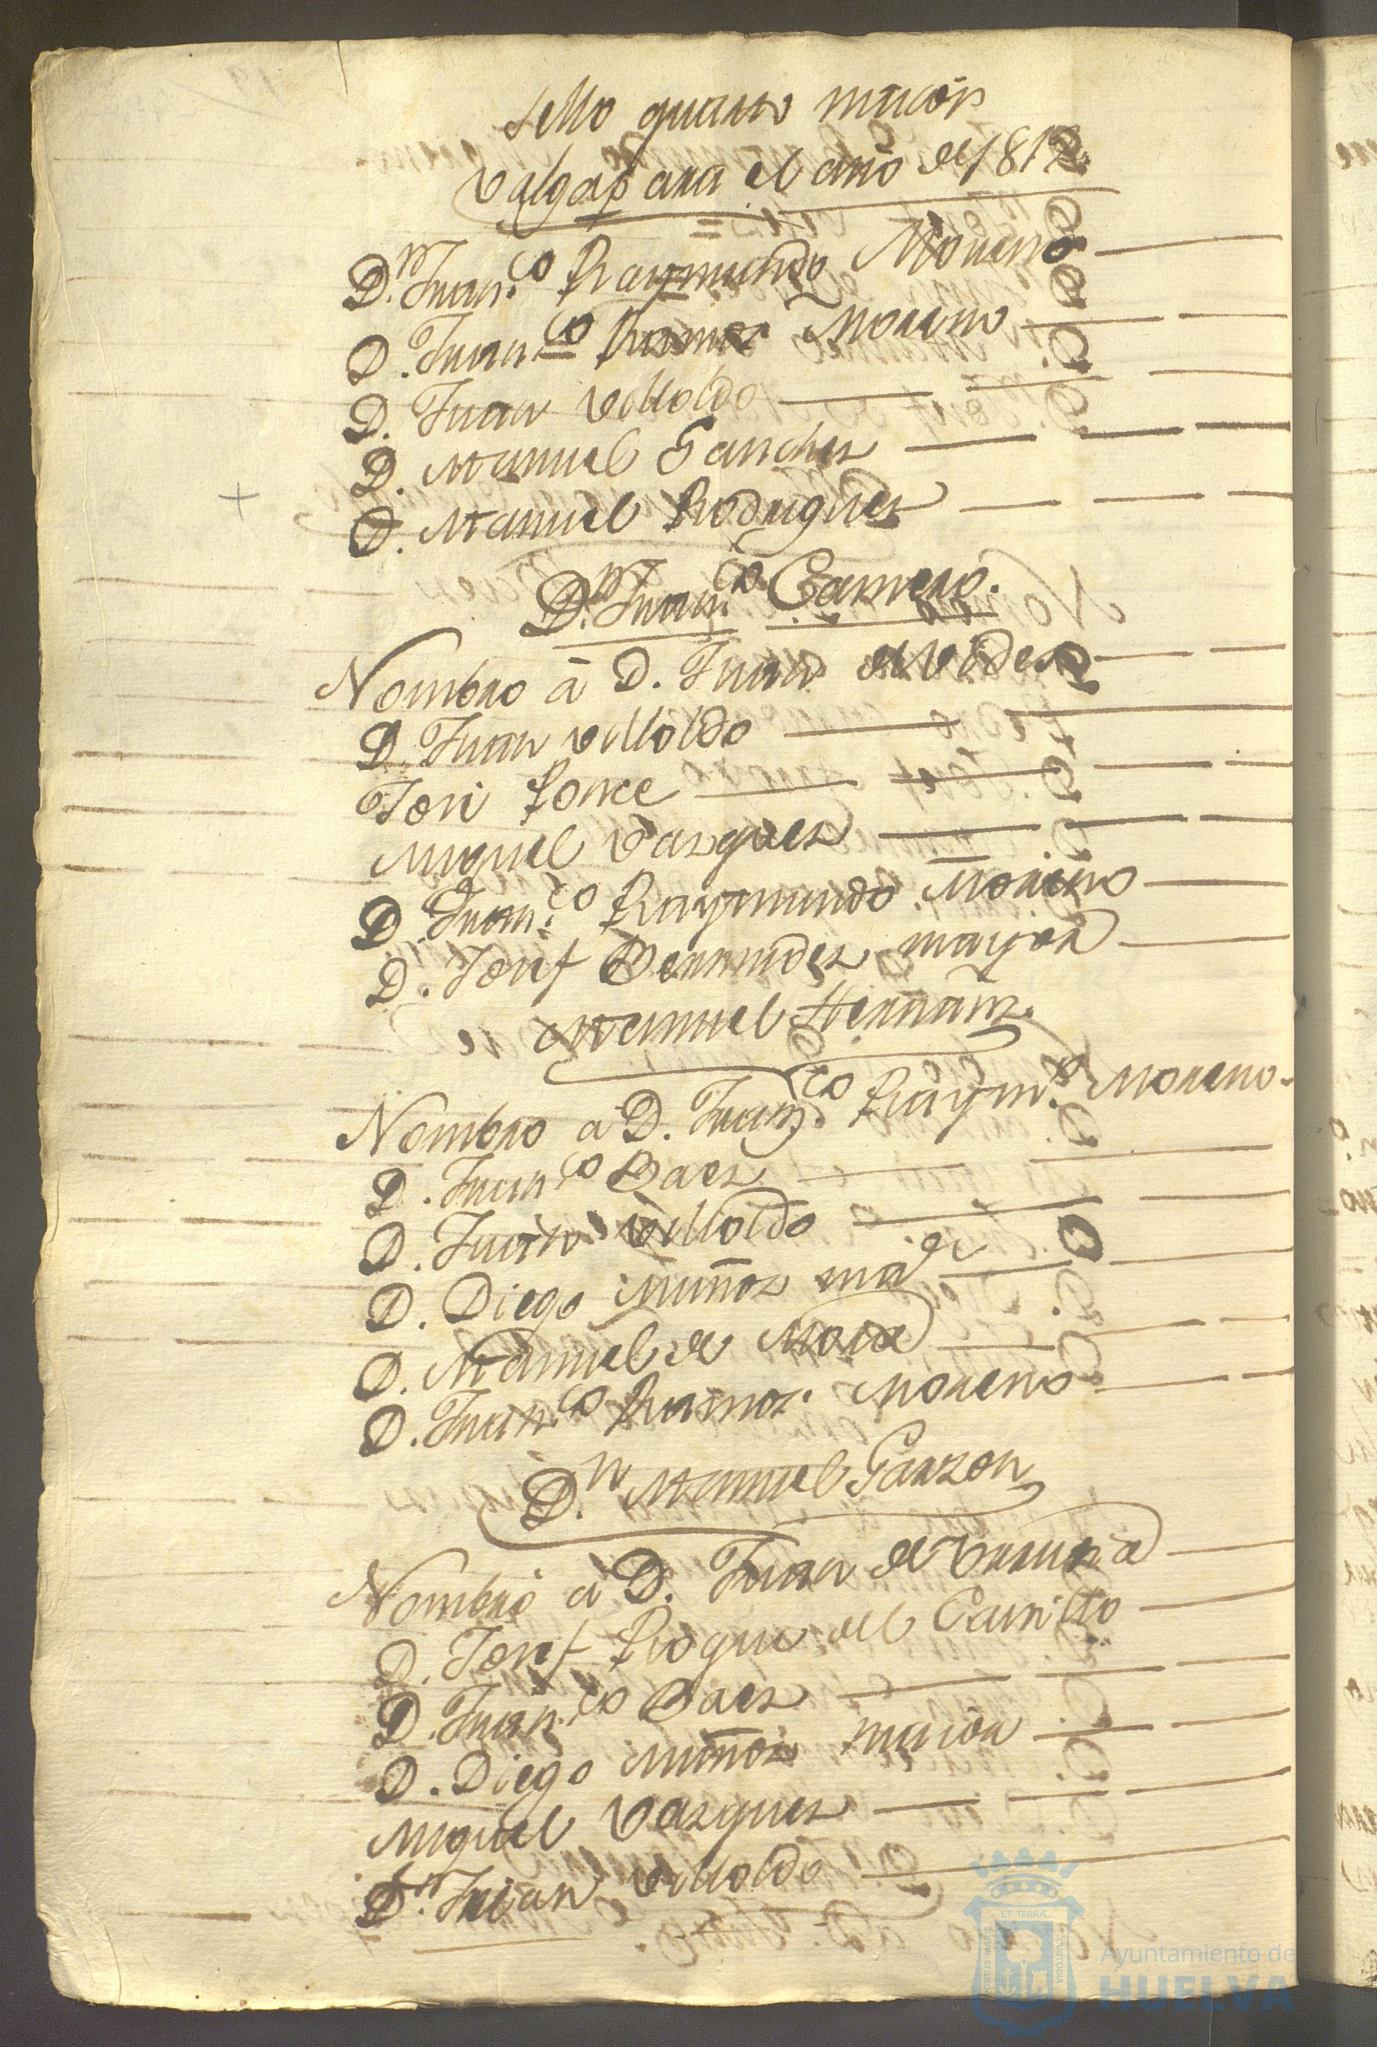 Sello quarto maior
Valga para el año de 1812
D.n Fran.co Raymundo Moreno
D. Fran.co Ramos Moreno
D. Juan Villoldo
D. Manuel Sanches
D. Manuel Rodrigues
D.n Fran.co Carrero.
Nombro â D. Juan
D. Juan Villoldo
Ponce
Miguel Vasques
D. Fran.co Raymundo Moreno
D. Josef Bermudes mayor
Manuel Hernanz.
Nombro a D. Fran.co Raym.do Moreno.
D. Fran.co Baes
D. Juan Villoldo
D. Diego Muñoz
D. Manuel de Mora
D. Fran.co Ramos Moreno
D.n Manuel Garzon
Nombro a D. Juan de
D. Josef Roque del
D. Fran.co Baes
D. Diego Muñoz maior
Miguel Vasques
D.n Juan Villoldo
Ayuntamiento de
HUELVA